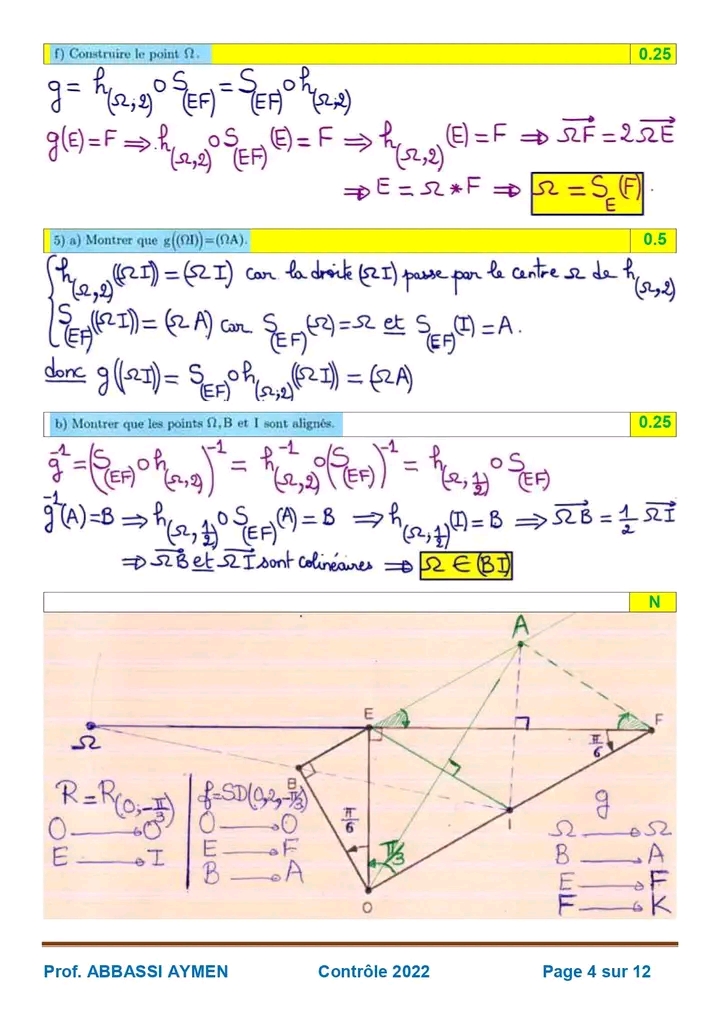 f) Construire le point Ω. 0.25
g = h(Ω,2) o S(EF) = S(EF) o h(Ω,2)
g(E) = F ⇒ h(Ω,2) o S(EF) (E) = F ⇒ h(Ω,2) (E) = F ⇒ ΩF = 2 ΩE
⇒ E = Ω * F ⇒ Ω = S_E (F).
5) a) Montrer que g((ΩI))=(ΩA). 0.5
h(Ω,2) ((ΩI)) = (ΩI) car la droite (ΩI) passe par le centre Ω de h(Ω,2)
S(EF) ((ΩI)) = (ΩA) car S(EF) (Ω) = Ω et S(EF) (I) = A.
donc g((ΩI)) = S(EF) o h(Ω,2) ((ΩI)) = (ΩA)
b) Montrer que les points Ω, B et I sont alignés. 0.25
g⁻¹ = (S(EF) o h(Ω,2))⁻¹ = h⁻¹(Ω,2) o (S(EF))⁻¹ = h(Ω,1/2) o S(EF)
g⁻¹(A) = B ⇒ h(Ω,1/2) o S(EF) (A) = B ⇒ h(Ω,1/2) (I) = B ⇒ ΩB = 1/2 ΩI
⇒ ΩB et ΩI sont colinéaires ⇒ Ω ∈ (BI)
N
A
E
F
Ω
π/6
B
R = R(O,-π/3)
O → O
E → I
f = SD(O,2,-π/3)
O → O
E → F
B → A
π/6
π/3
I
O
g
Ω → Ω
B → A
E → F
F → K
Prof. ABBASSI AYMEN Contrôle 2022 Page 4 sur 12